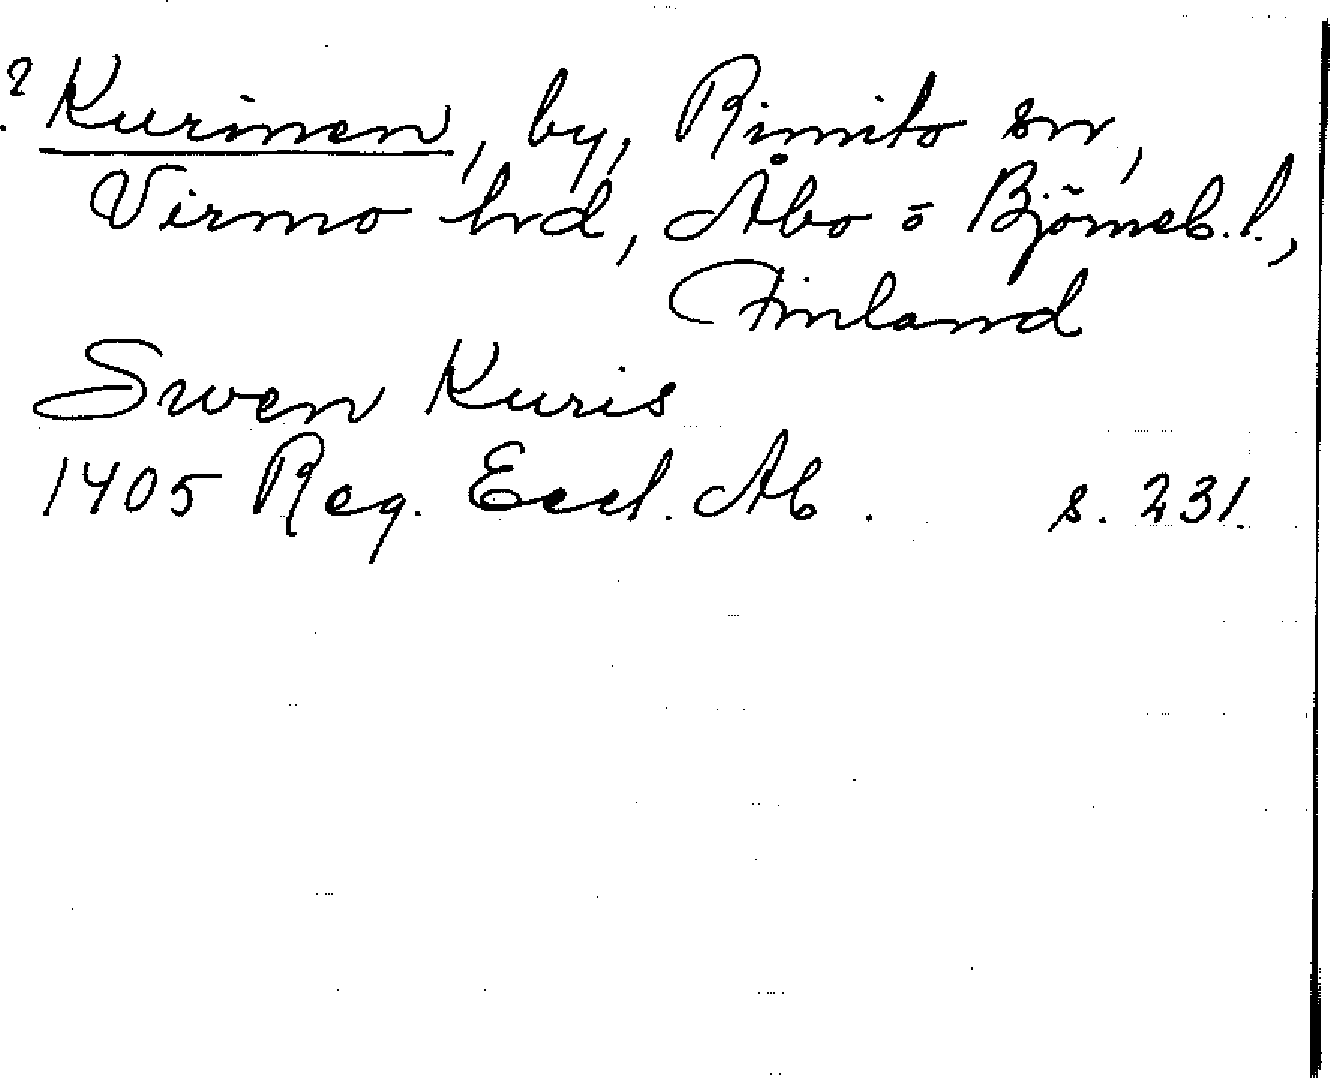 ? Kurinen, by, Rimito sn,
Virmo hrd, Åbo o Björneb. l.,
Finland
Swen Kuris
1405 Reg. Eccl. Ab. s. 231.